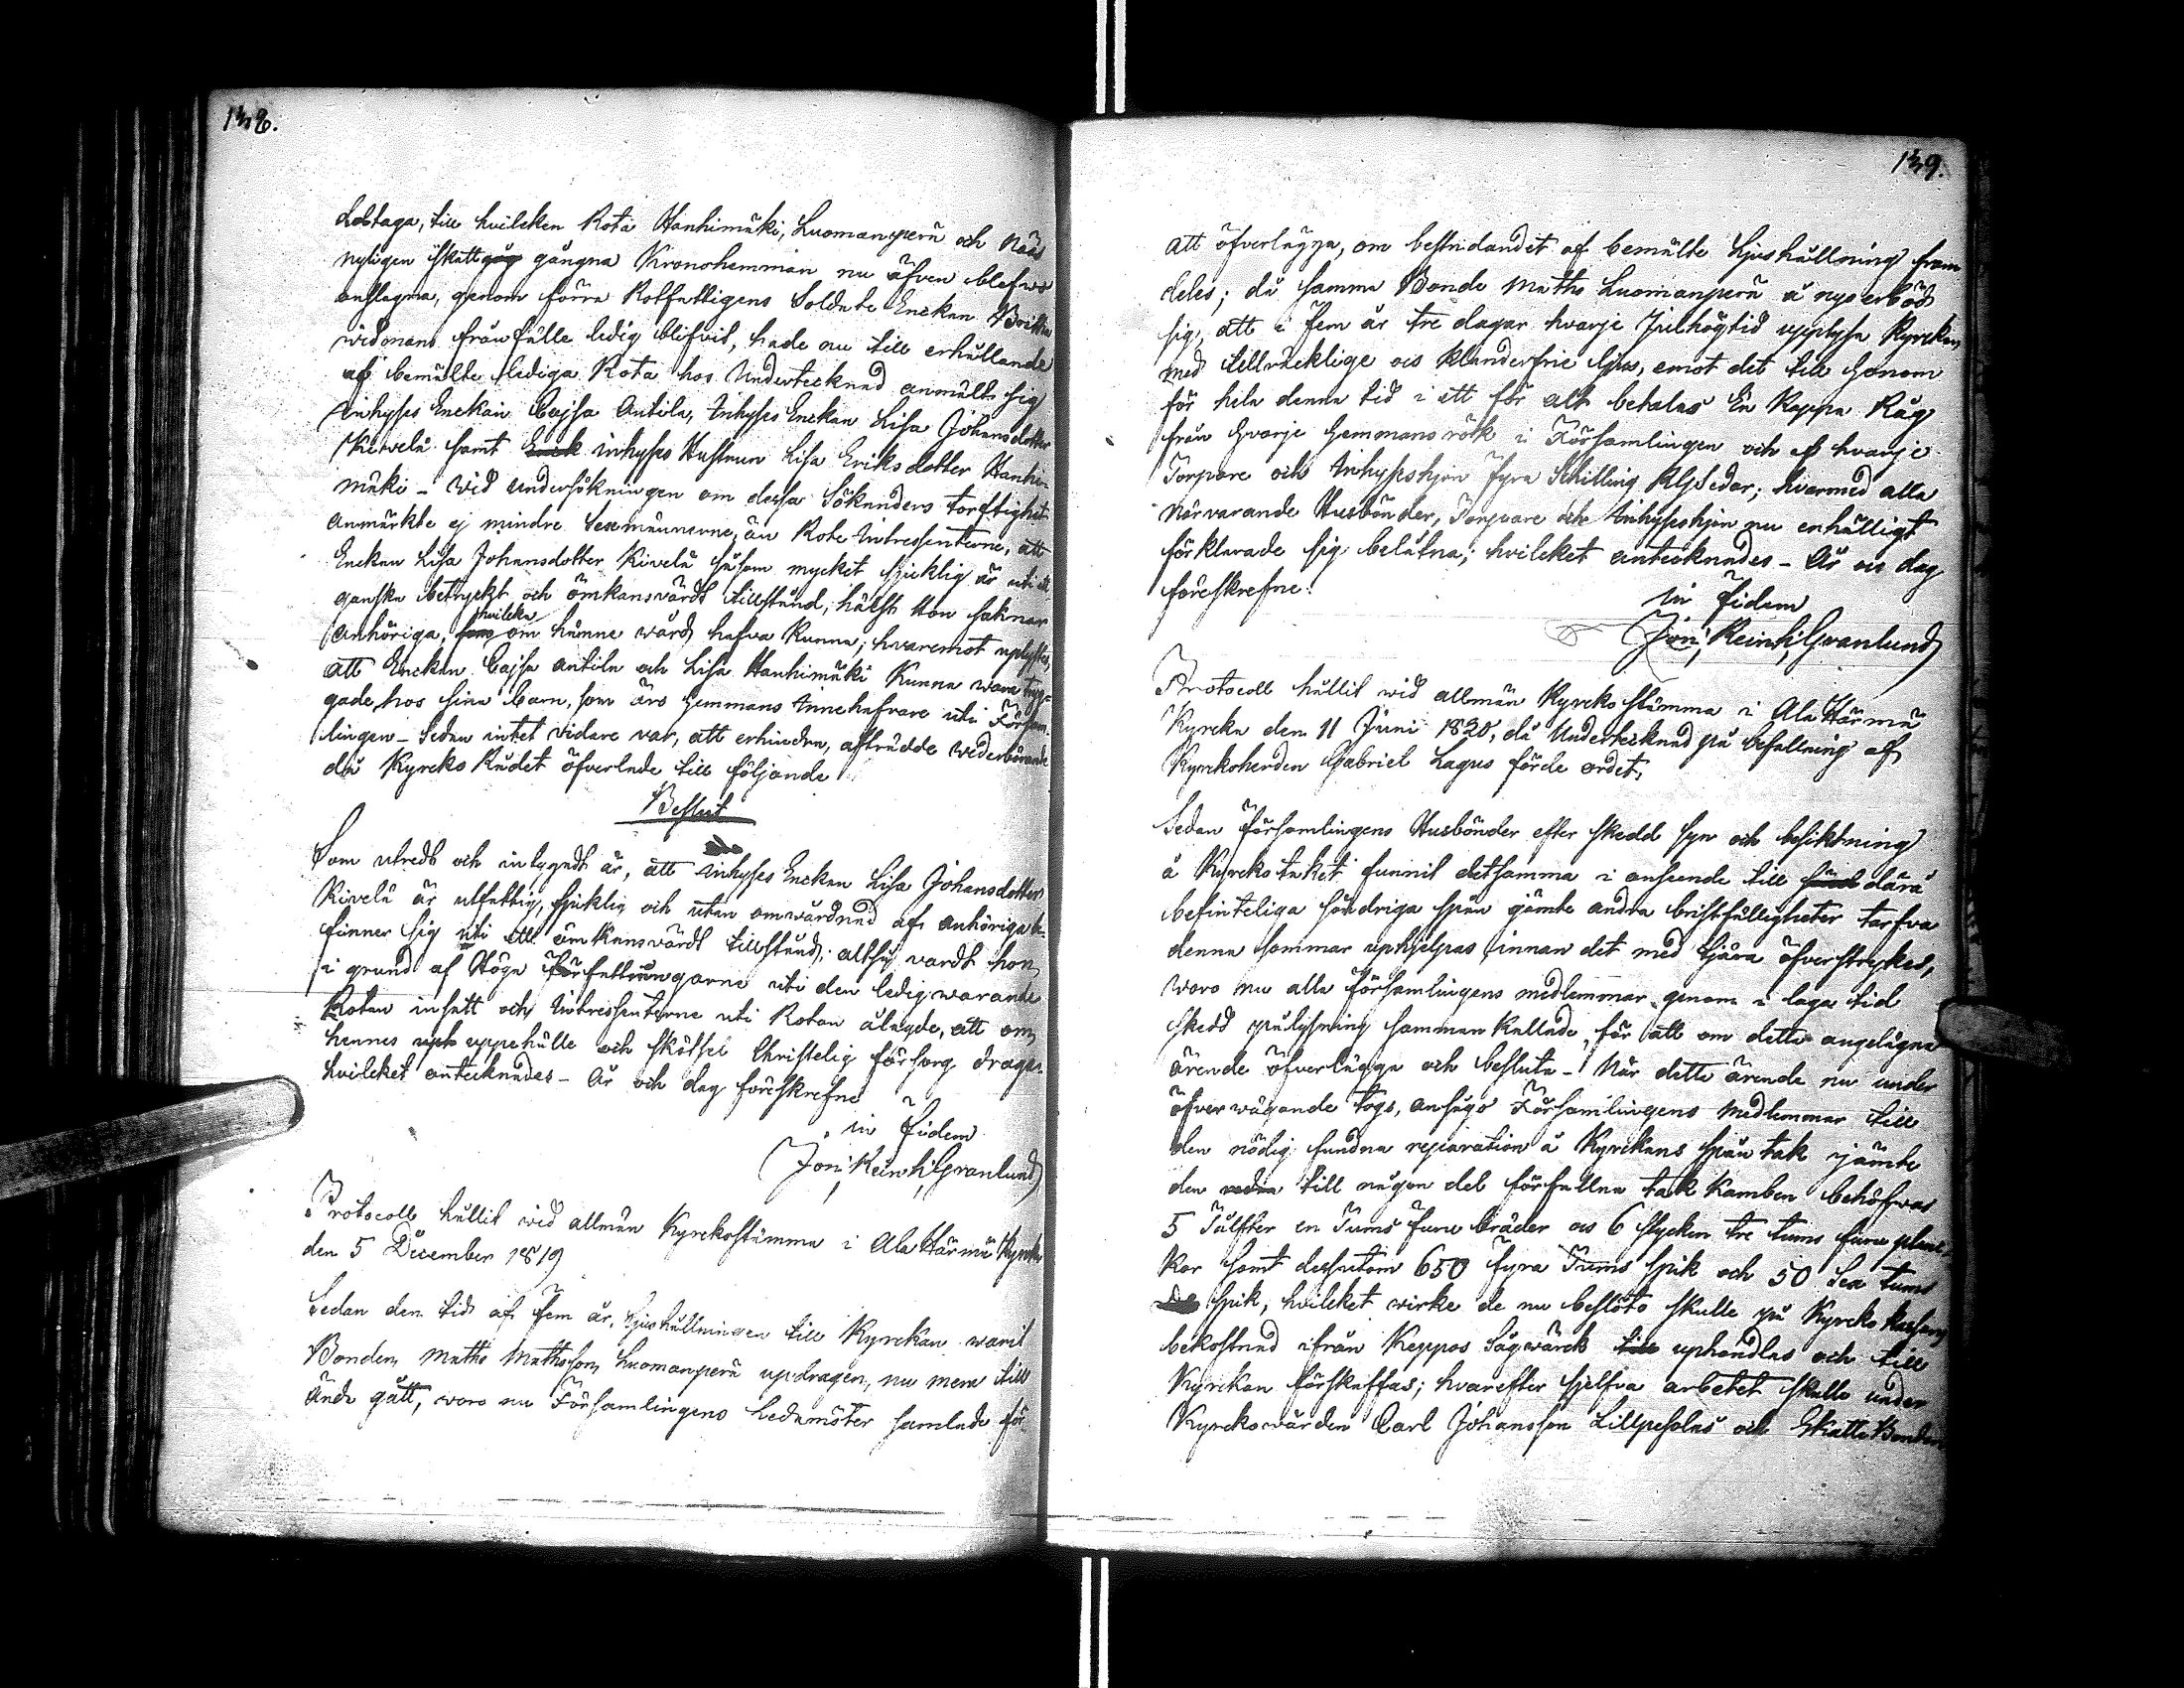 148.
deltaga, till hvilcken Rota Hanhimäki, Luomanperä och Näs
nyligen skatt gångna Kronohemman nu äfven blefwo
anslagna, genom förra Rotfattigens Soldate Enckan Britha
Widmans frånfälle ledig blifvit, hade nu till erhållande
af bemälte lediga Rota hos Undertecknad anmält sig
Inhyses Enckan Cajsa Antila, Inhyses Enckan Lisa Johansdotter
Kiwelä samt Erick inhyses Hustrun Lisa Eriksdotter Hanhi-
mäki - Wid undersökningen om dessa Sökanders torftighet
anmärkte ej mindre Sexmännerne, än Rote Intressenterne, att
Enckan Lisa Johansdotter Kivelä såsom mycket sjuklig är uti ett
ganska betryckt och ömkansvärdt tillstånd, hälst Hon saknar
anhöriga, hvilcka om hänne wård hafva kunna; hvaremot uplystes,
att Enckan Cajsa Antila och Lisa Hanhimäki kunna wara tryg-
gade hos sina barn, som äro Hemmans Innehafvare uti Försam-
lingen - Sedan intet vidare var, att erhindra, afträdde wederbörande
då Kyrcko Rådet öfverlade till följande
Beslut
Som utredt och intygadt är, att Inhyses Enckan Lisa Johansdotter
Kivelä är utfattig, sjuklig och utan omwårdnad af anhöriga be-
finner sig uti ett ömkansvärdt tillstånd; altså vardt hon
i grund af Höga Författningarne uti den ledig warande
Rotan insatt och Intressenterne uti Rotan ålagde, att om
hennes uppehälle och skötsel Christelig försorg draga.
hvilcket antecknades - År och dag föreskrefne
in Fidem
Joh: Reinh: Granlund
Protocoll hållit wid allmän Kyrckostämma i Ala Härmä Kyrcka
den 5 December 1819
Sedan den tid af fem år, ljushållningen till Kyrckan warit
Bonden Maths Mathsson Luomanperä updragen, nu mera till
ända gått, woro nu Församlingens Ledamöter samlade för
149.
att öfverlägga, om bestridandet af bemälte ljushållning fram-
deles; då samma Bonde Maths Luomanperä å nyo erböd
sig, att i fem år tre dagar hvarje Julhögtid upplysa Kyrckan
med tillräcklige och klanderfrie ljus, emot det till Honom
för hela denna tid i ett för allt betalas En Kappa Råg
från Hvarje Hemmans rök i Församlingen och af hvarje
Torpare och Inhyseshjon fyra Schilling RgSedar; hvarmed alla
närvarande Husbönder, Torpare och Inhyseshjon nu enhälligt
förklarade sig belåtna; hvilcket antecknades - År och dag
föreskrefne.
in Fidem
Joh: Reinh: Granlund
Protocoll hållit wid allmän Kyrcko Stämma i Ala Härmä
Kyrcka den 11 Juni 1820, då Undertecknad på befallning af
Kyrckoherden Gabriel Lagus förde ordet.
Sedan Församlingens Husbönder efter skedd syn och besiktning
å Kyrcko taket funnit detsamma i anseende till därå
befinteliga söndriga spån jämte andra bristfälligheter tarfva
denna sommar uphjelpas innan det med tjära öfverstrykes,
woro nu alla Församlingens medlemmar genom i laga tid
skedd pålysning sammankallade, för att om detta angelägna
ärende öfverlägga och besluta - När detta ärende nu under
öfverwägande togs, ansågo Församlingens medlemmar till
den nödig fundna reparation å Kyrckans spån tak jämte
den redan till någon del förfallna tak kamben behöfwas
5 Tålfter en Tums furu bräder och 6 stycken tre tums furu plan-
kor samt dessutom 650 fyra Tums spik och 50 Sex tums
spik, hvilcket wirke de nu beslöto skulle på Kyrcko kassans
bekostnad ifrån Keppos Sågwärck till uphandlas och till
Kyrckan förskaffas; hvarefter sjelfva arbetet skulle under
Kyrckowärden Carl Johansson Lillpesolas och Skatte Bonden